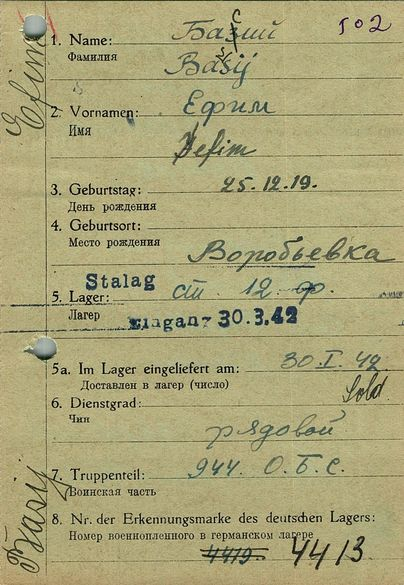 502
1. Name: Базий
Фамилия
Basij
2. Vornamen: Ефим
Имя
Jefim
3. Geburtstag: 25.12.19.
День рождения
4. Geburtsort:
Место рождения
Воробьевка
Stalag
5. Lager: 12
Лагер
Eingang 30.3.42
5a. Im Lager eingeliefert am: 30.I.42
Доставлен в лагер (число)
Sold
6. Dienstgrad:
Чин
рядовой
7. Truppenteil: 944. О.Б.С.
Воинская часть
8. Nr. der Erkennungsmarke des deutschen Lagers:
Номер военнопленного в германском лагере
4419 4413
Efim
Basij